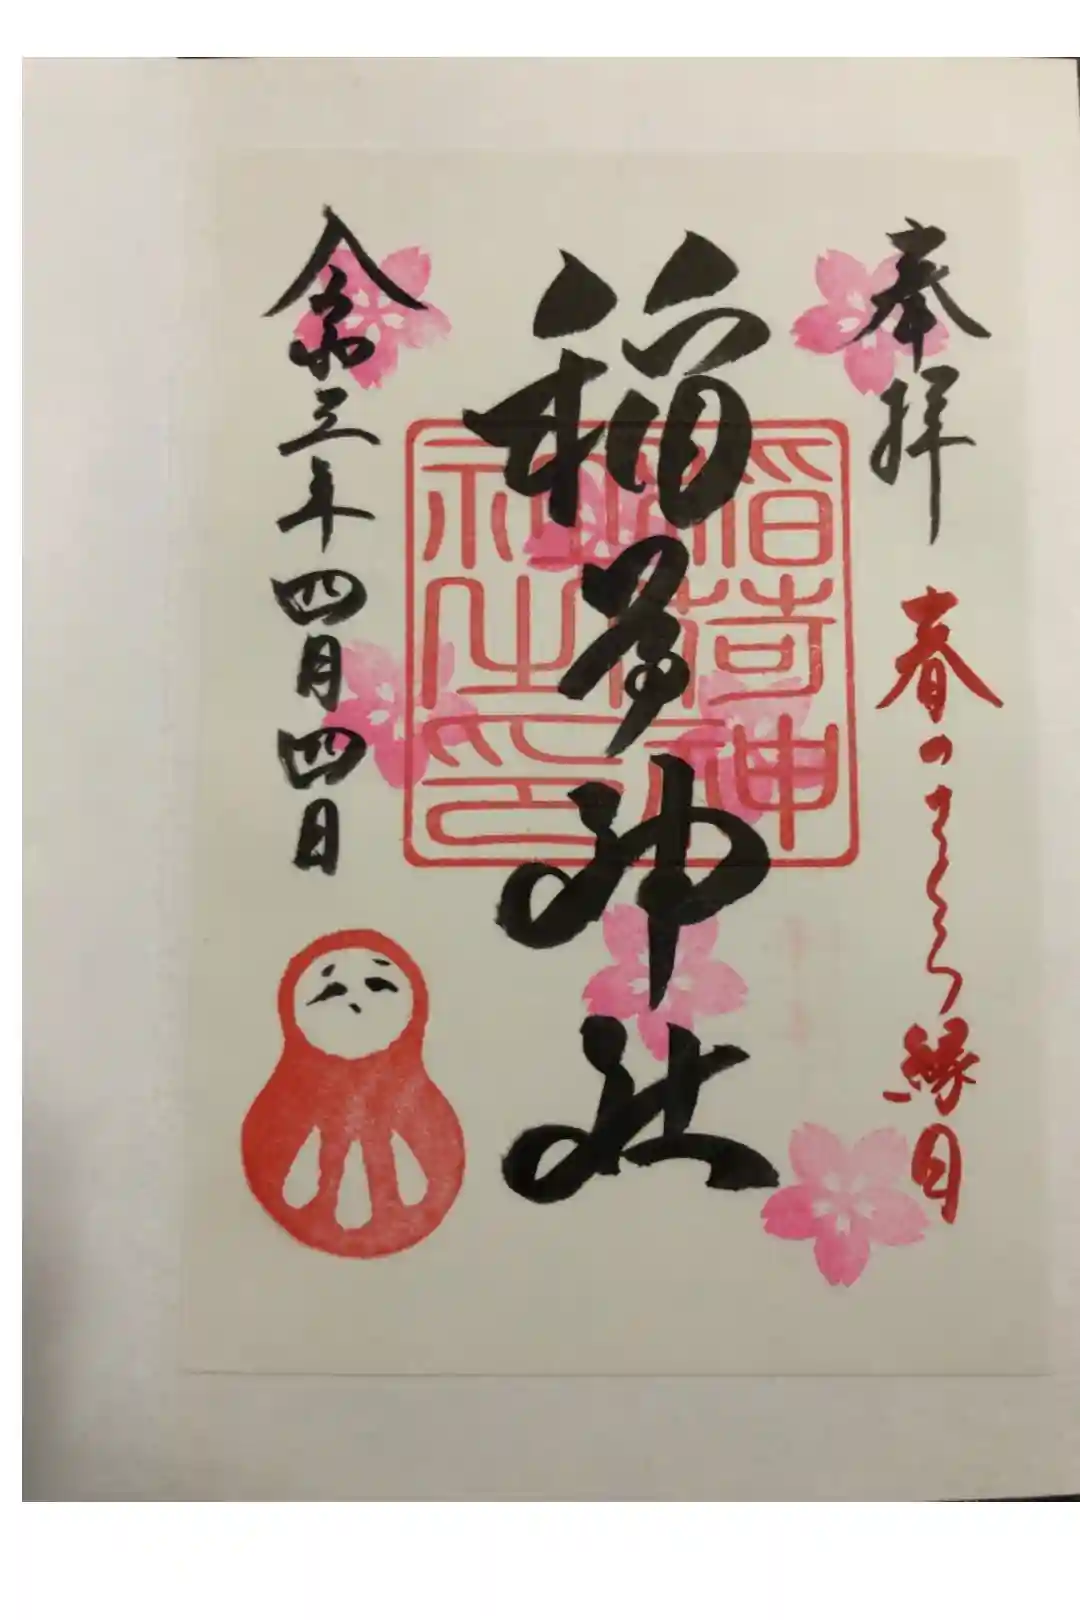 奉拝 春のさくら縁日
稲荷神社
稲荷神
社之印
令和三年四月四日